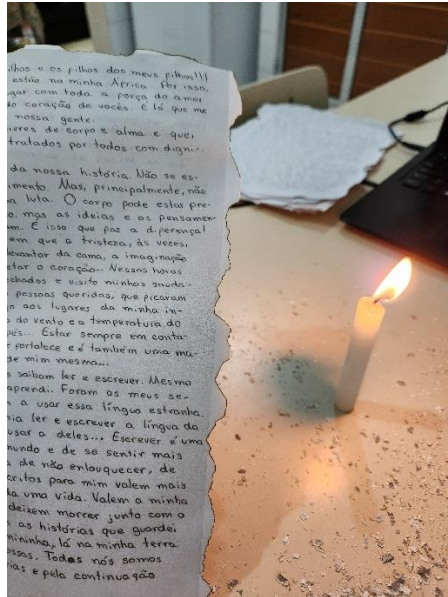 ilhos e os filhos dos meus filhos!!!
estão na minha África. Por isso,
gar com toda a força do amor
do coração de vocês. E lá que me
nossa gente.
livres de corpo e alma e que
tratados por todos com digni-
da nossa história. Não se es-
imento. Mas, principalmente, não
a luta. O corpo pode estar pre-
o, mas as ideias e os pensamen-
am. É isso que faz a diferença!
em que a tristeza, às vezes,
levantar da cama, a imaginação
etar o coração... Nessas horas
echados e visito minhas sauda-
pessoas queridas, que ficaram
o aos lugares da minha in-
s do vento e a temperatura do
pés... Estar sempre em conta-
fortalece e é também uma ma-
de mim mesma...
s saibam ler e escrever. Mesmo
aprendi. Foram os meus se-
m a usar essa língua estranha.
bia ler e escrever a língua da
usar a deles... Escrever é uma
mundo e de se sentir mais
a de não enlouquecer, de
critos para mim valem mais
da uma vida. Valem a minha
deixem morrer junto com o
as histórias que guardei
mininha, lá na minha terra
ossas. Todos nós somos
rias e pela continuação